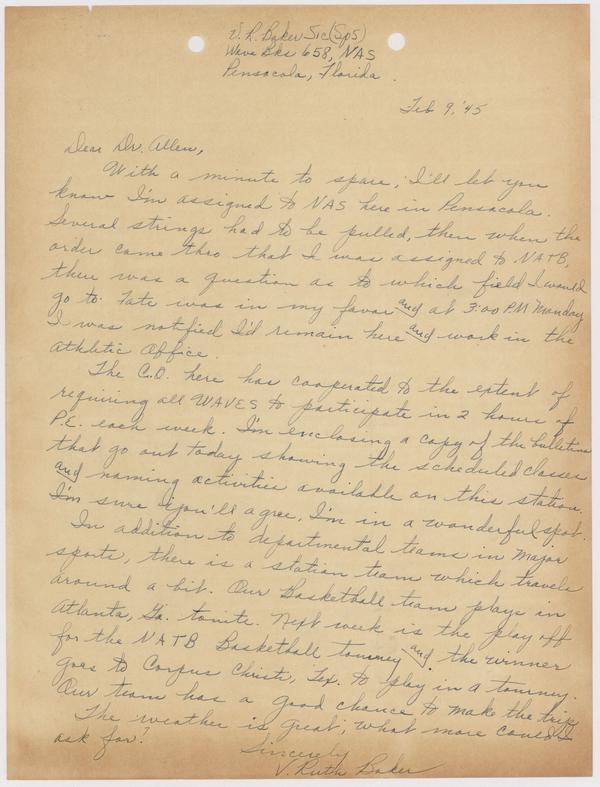 V. R. Baker S1c(SpS)
Wave Bks 658, NAS
Pensacola, Florida.
Feb 9, '45
Dear Dr. Allen,
With a minute to spare, I'll let you
know I'm assigned to NAS here in Pensacola.
Several strings had to be pulled, then when the
order came thro that I was assigned to NATB,
there was a question as to which field I would
go to. Fate was in my favor and at 3:00 PM Monday
I was notified I'd remain here and work in the
Athletic Office.
The C.O. here has cooperated to the extent of
requiring all WAVES to participate in 2 hours of
P.E. each week. I'm enclosing a copy of the bulletins
that go out today showing the scheduled classes
and naming activities available on this station.
I'm sure you'll agree, I'm in a wonderful spot.
In addition to departmental teams in major
sports, there is a station team which travels
around a bit. Our Basketball team plays in
Atlanta, Ga. tonite. Next week is the play off
for the NATB Basketball tourney and the winner
goes to Corpus Christi, Tex. to play in a tourney.
Our team has a good chance to make the trip
The weather is great, what more could I
ask for?
Sincerely
V. Ruth Baker